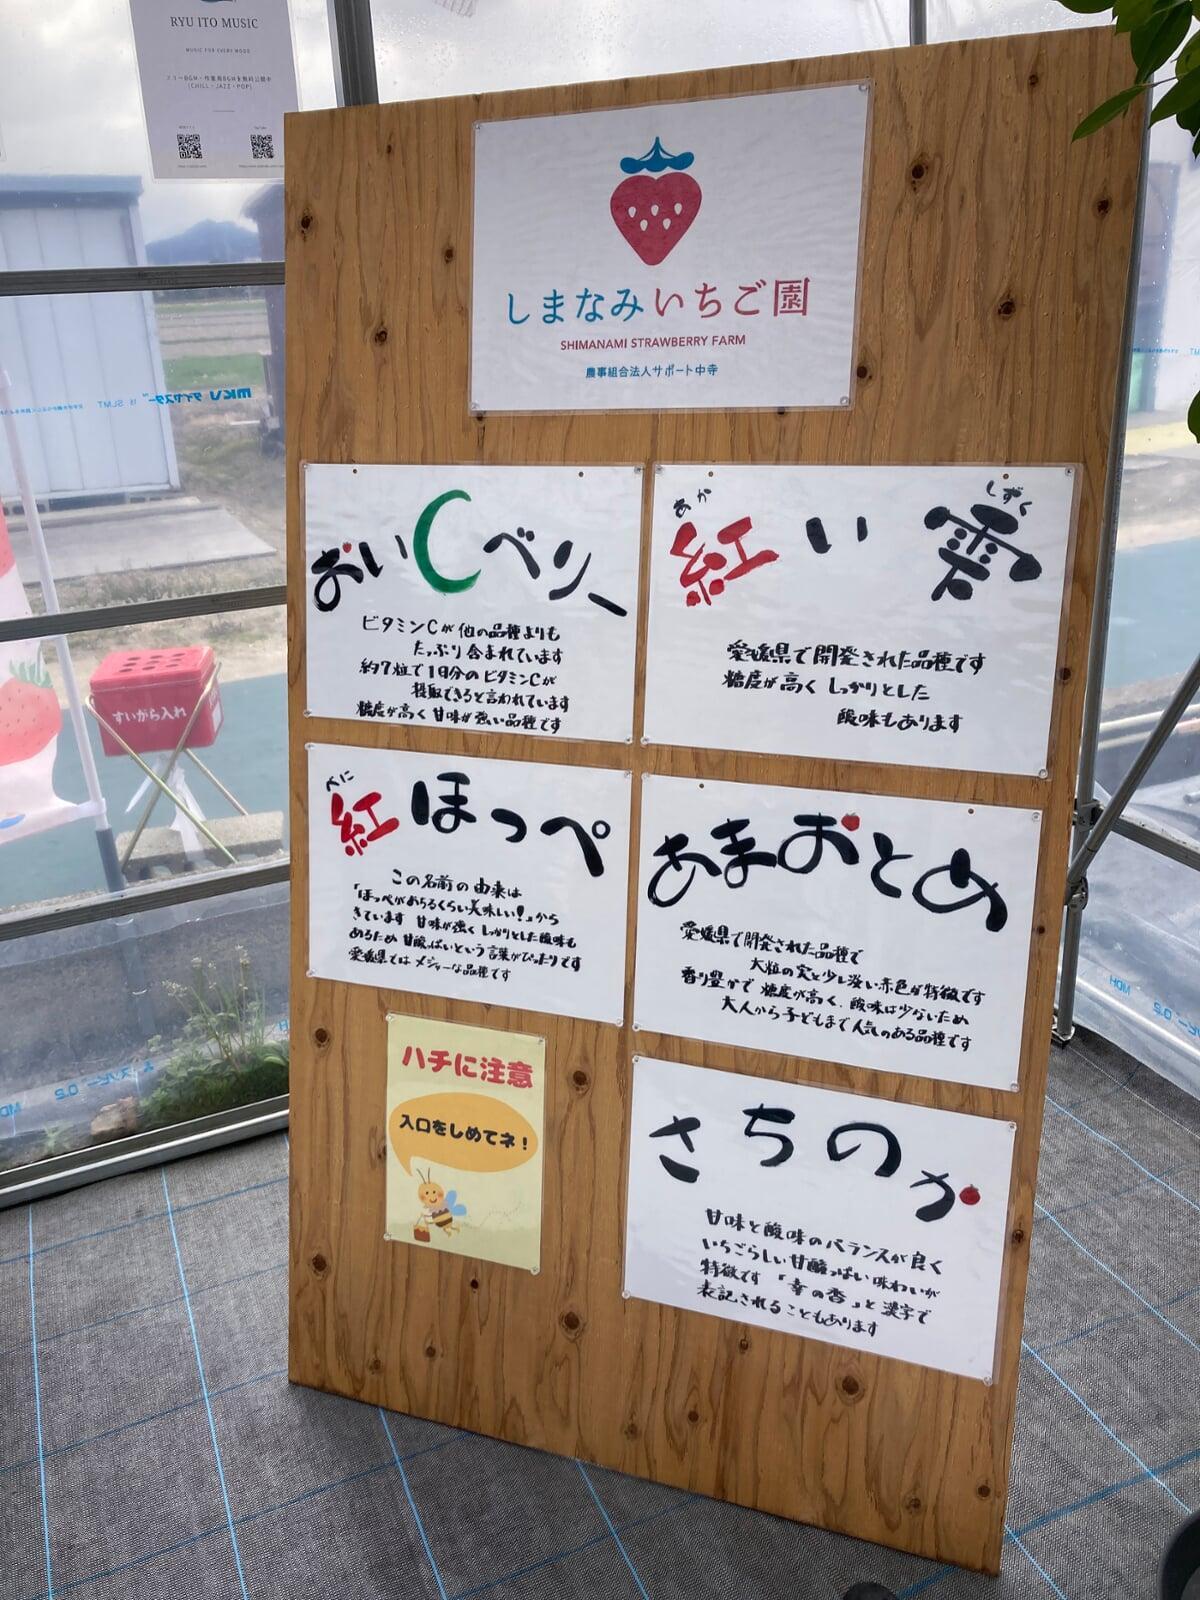 RYU ITO MUSIC
MUSIC FOR EVERY MOOD
フリーBGM・作業用BGMを無料公開中
(CHILL・JAZZ・POP)
しまなみいちご園
SHIMANAMI STRAWBERRY FARM
農事組合法人サポート中寺
おいCベリー
ビタミンCが他の品種よりも
たっぷり含まれています
約7粒で1日分のビタミンCが
摂取できると言われています
糖度が高く甘味が強い品種です
あか しずく
紅い雫
愛媛県で開発された品種です
糖度が高くしっかりとした
酸味もあります
べに
紅ほっぺ
この名前の由来は
「ほっぺがおちるくらい美味しい!」から
きています 甘味が強くしっかりとした酸味も
あるため 甘酸っぱいという言葉がぴったりです
愛媛県ではメジャーな品種です
あまおとめ
愛媛県で開発された品種で
大粒の実と少し淡い赤色が特徴です
香り豊かで糖度が高く、酸味は少ないため
大人から子どもまで人気のある品種です
ハチに注意
入口をしめてネ!
さちのか
甘味と酸味のバランスが良く
いちごらしい甘酸っぱい味わいが
特徴です 「幸の香」と漢字で
表記されることもあります
すいがら入れ